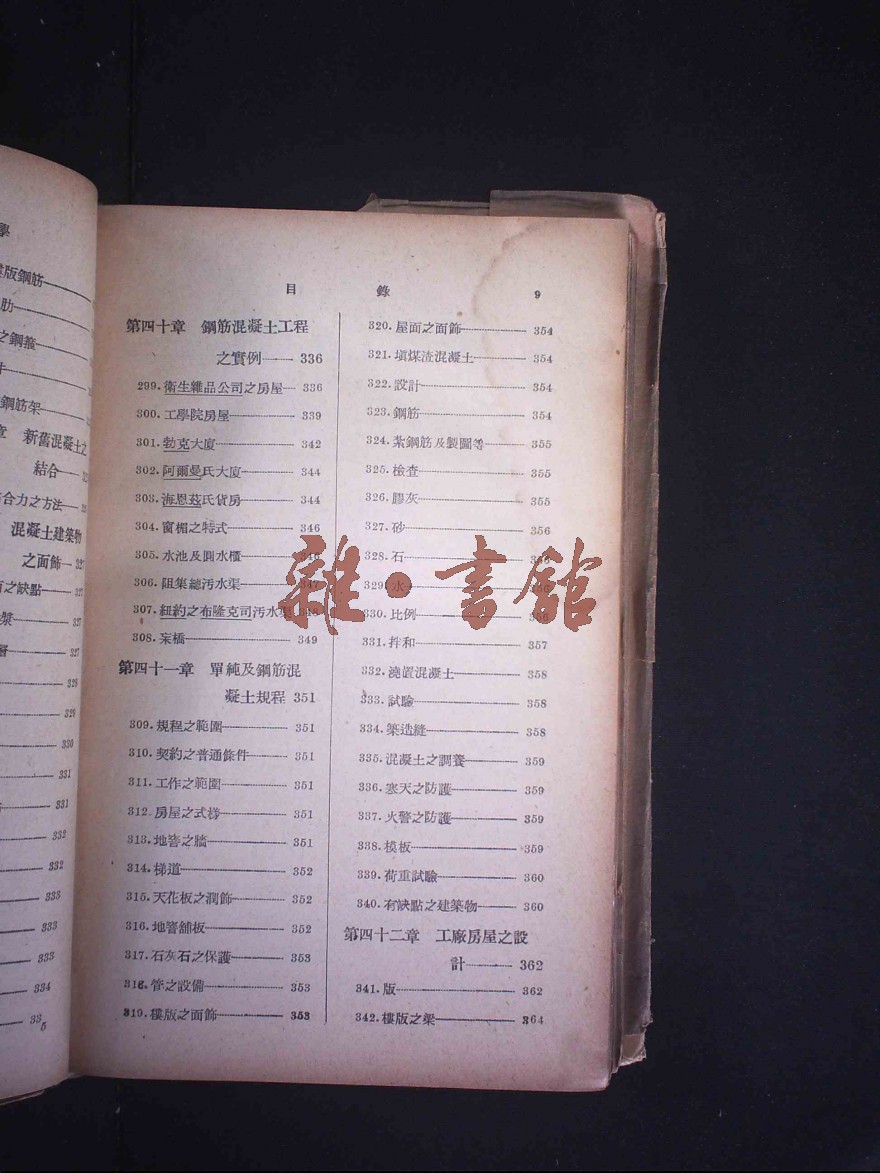 學
樓版鋼筋
肋
之鋼箍
件
鋼筋架
章 新舊混凝土之
結合
結合力之方法
混凝土建築物
之面飾 327
之缺點 327
漿 327
層 327
328
329
330
331
331
332
332
333
333
333
334
335
目 錄 9
第四十章 鋼筋混凝土工程
之實例 336
299.衛生雜品公司之房屋 336
300.工學院房屋 339
301.勃克大廈 342
302.阿爾曼氏大廈 344
303.海恩茲氏貨房 344
304.窗楣之特式 346
305.水池及圓水櫃 346
306.阻集總污水渠 347
307.紐約之布隆克司污水渠 348
308.穼橋 349
第四十一章 單純及鋼筋混
凝土規程 351
309.規程之範圍 351
310.契約之普通條件 351
311.工作之範圍 351
312.房屋之式樣 351
313.地窖之牆 351
314.梯道 352
315.天花板之潤飾 352
316.地窖舖板 352
317.石灰石之保護 353
318.管之設備 353
319.樓版之面飾 353
320.屋面之面飾 354
321.塡煤渣混凝土 354
322.設計 354
323.鋼筋 354
324.紮鋼筋及製圖等 355
325.檢查 355
326.膠灰 355
327.砂 356
328.石
329.水
330.比例
331.拌和 357
332.澆置混凝土 358
333.試驗 358
334.築造縫 358
335.混凝土之調養 359
336.寒天之防護 359
337.火警之防護 359
338.模板 359
339.荷重試驗 360
340.有缺點之建築物 360
第四十二章 工廠房屋之設
計 362
341.版 362
342.樓版之梁 364
雜·書館